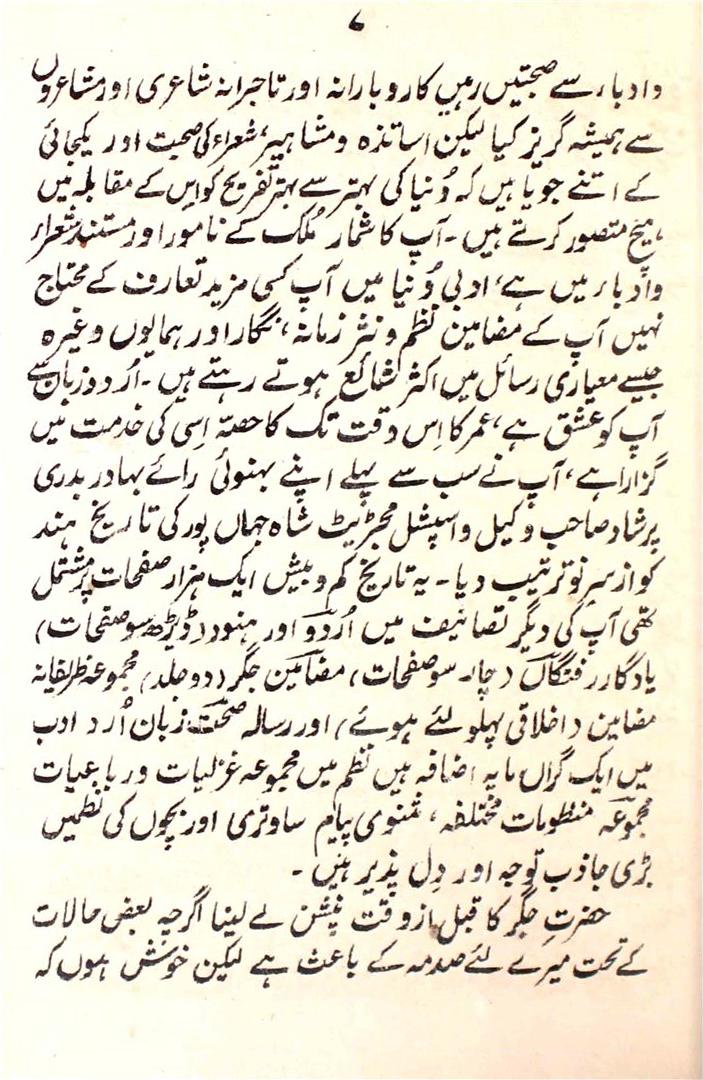 ۷
وادباء سے صحبتیں رہیں کاروبارانہ اور تاجرانہ شاعری اور مشاعروں
سے ہمیشہ گریز کیا لیکن اساتذہ ومشاہیر، شعراء کی صحبت اور یکجائی
کے اتنے جویا ہیں کہ دُنیا کی بہتر سے بہتر تفریح کو اس کے مقابلہ میں
ہیچ متصور کرتے ہیں۔ آپ کا شمار مُلک کے نامور اور مستند شعراء
وادباء میں ہے، ادبی دُنیا میں آپ کسی مزید تعارف کے محتاج
نہیں آپ کے مضامین نظم ونثر زمانہ، نگار اور ہمایوں وغیرہ
جیسے معیاری رسائل میں اکثر شائع ہوتے رہتے ہیں۔ اُردو زبان سے
آپ کو عشق ہے، عمر کا اِس وقت تک کا حصّہ اِسی کی خدمت میں
گزارا ہے، آپ نے سب سے پہلے اپنے بہنوئی رائے بہادر بدری
پرشاد صاحب وکیل واسپشل مجڑیٹ شاہ جہاں پور کی تاریخ ہند
کو از سرِ نو ترتیب دیا۔ یہ تاریخ کم وبیش ایک ہزار صفحات پر مشتمل
تھی آپ کی دیگر تصانیف میں اُردو اور ہنود (ڈیڑھ سو صفحات)
یادگار رفتگاں (چار سو صفحات) مضامین جگر (دو جلد) مجموعہ ظریفانہ
مضامین (اخلاقی پہلو لئے ہوئے) اور رسالہ صحت زبان اُردو ادب
میں ایک گراں مایہ اضافہ ہیں نظم میں مجموعہ غزلیات ورباعیات
مجموعہ منظومات مختلفہ، مثنوی پیام ساوتری اور بچوں کی نظمیں
بڑی جاذب توجہ اور دِل پذیر ہیں۔
حضرتِ جگر کا قبل از وقت پنشن لے لینا اگرچہ بعض حالات
کے تحت میرے لئے صدمہ کے باعث ہے لیکن خوش ہوں کہ